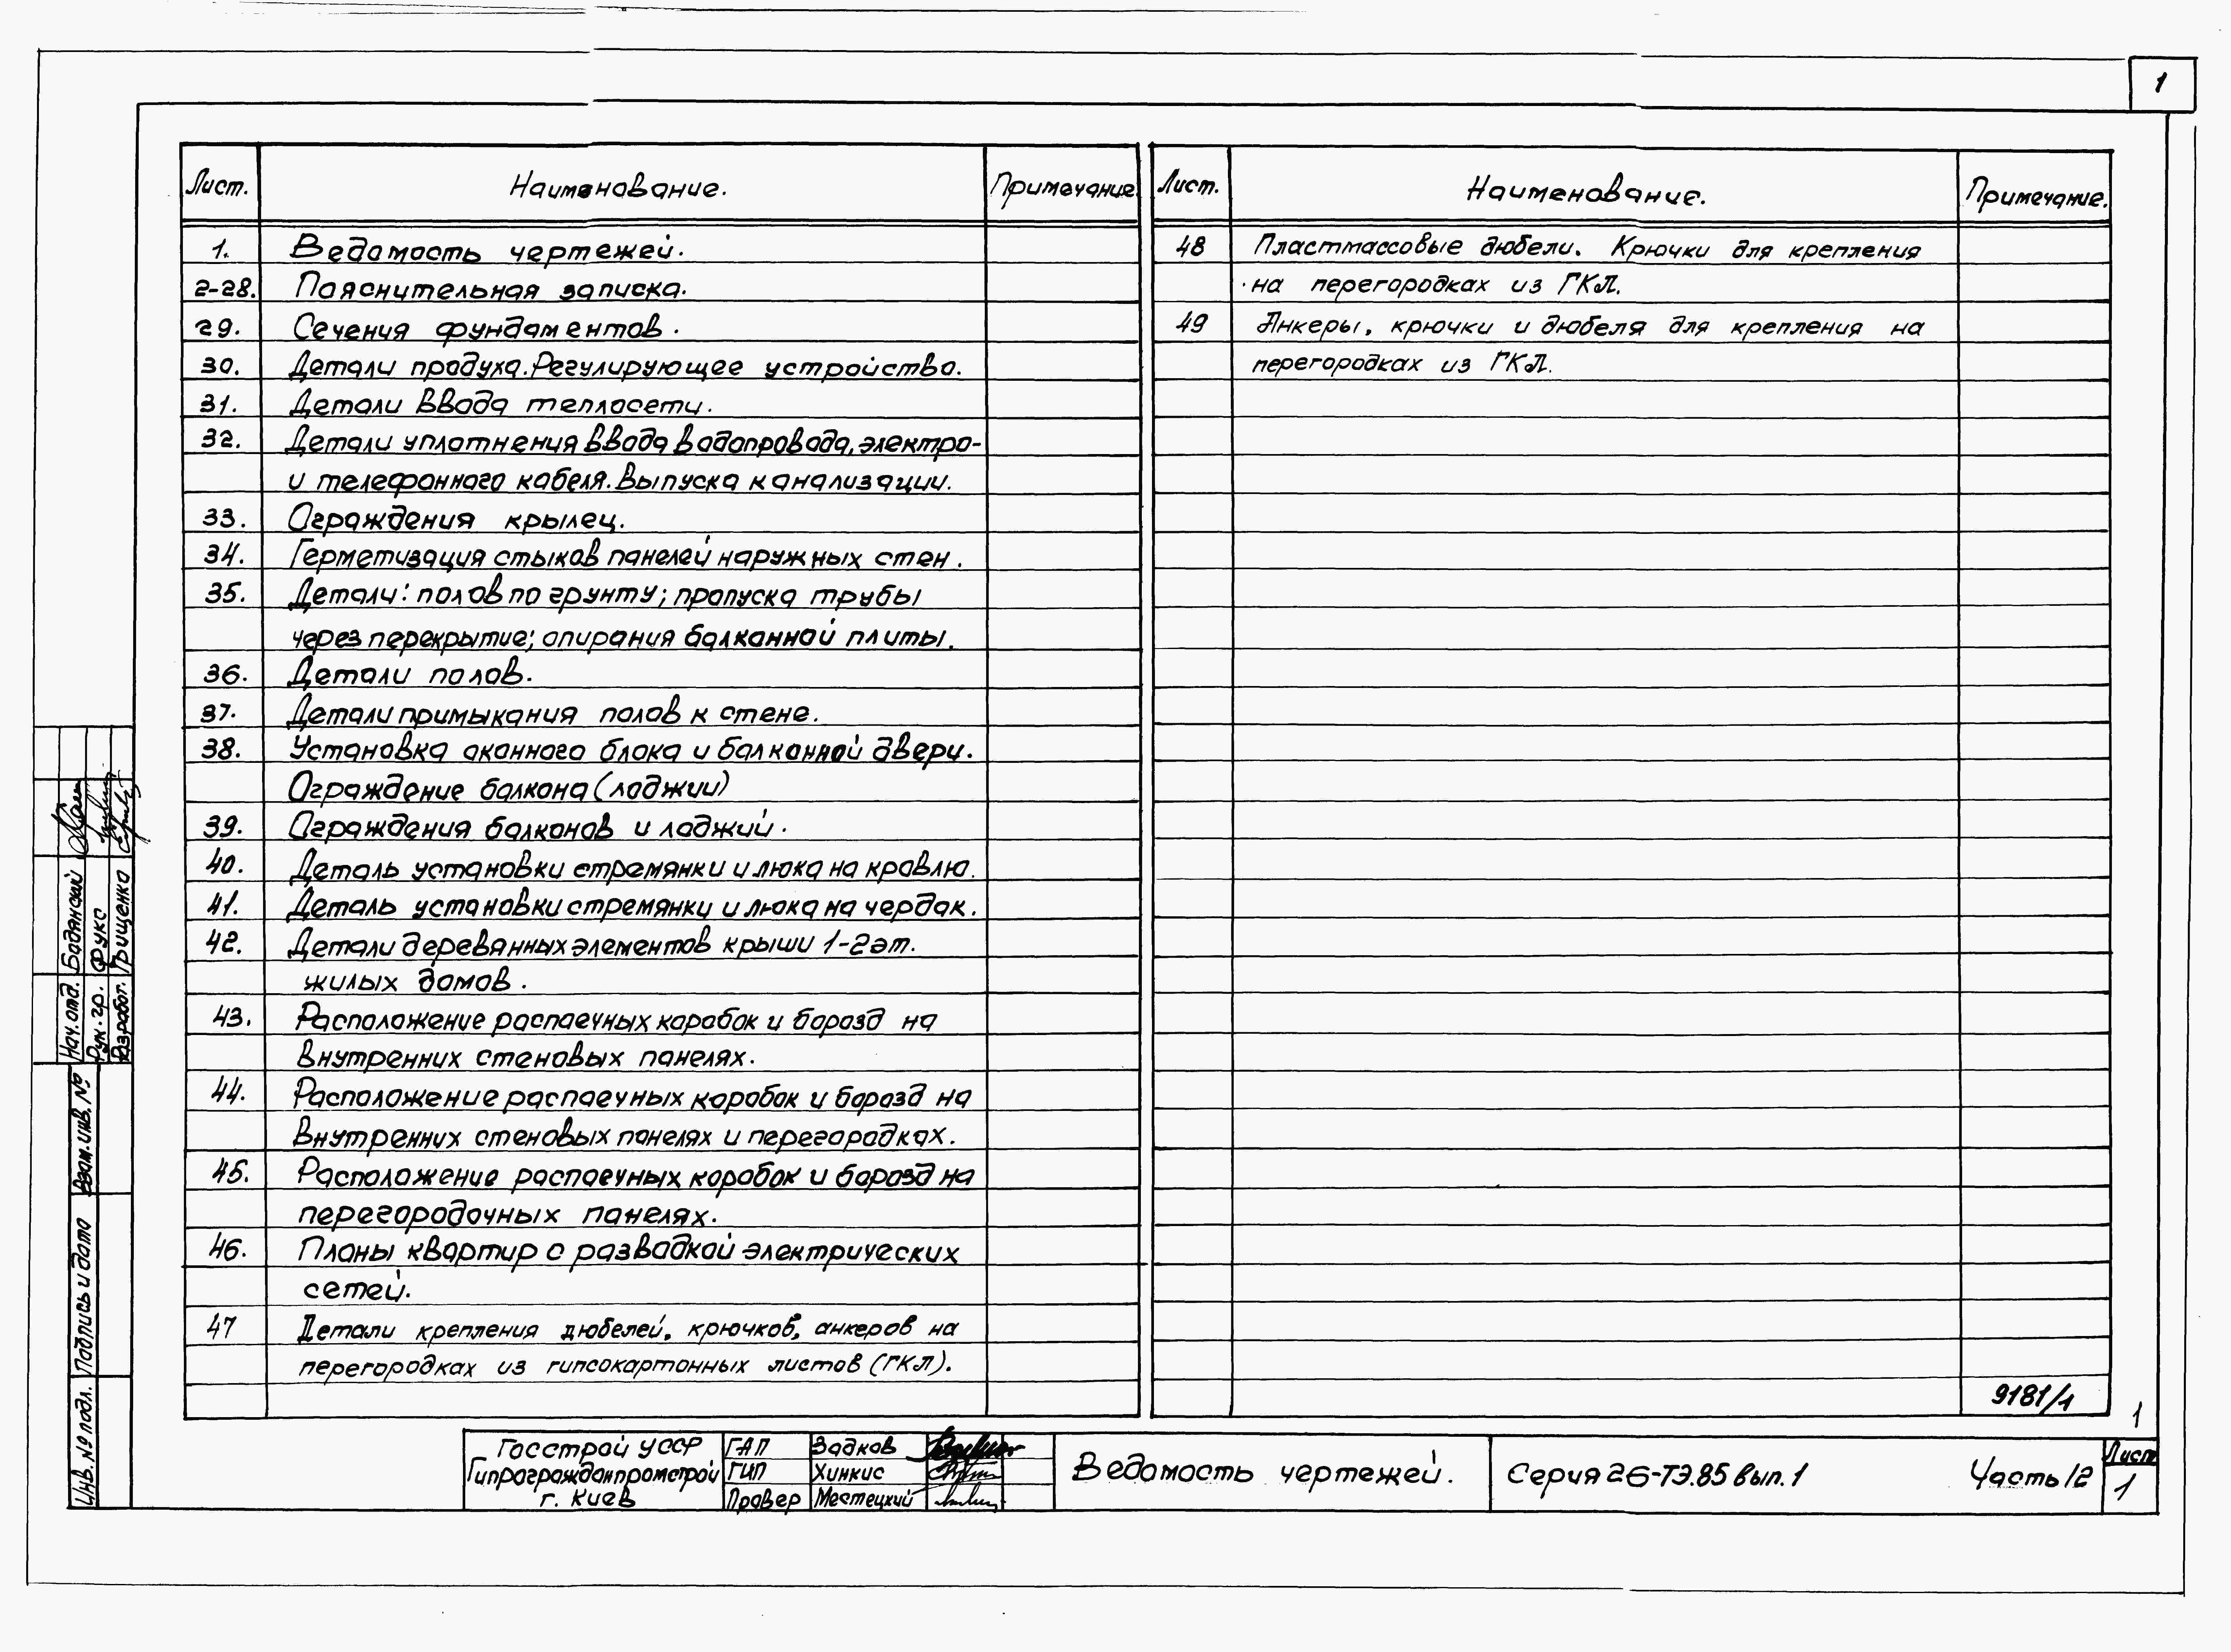 1
Лист. Наименование. Примечание.
1. Ведомость чертежей.
2-28. Пояснительная записка.
29. Сечения фундаментов.
30. Детали продуха. Регулирующее устройство.
31. Детали ввода теплосети.
32. Детали уплотнения ввода водопровода, электро-
и телефонного кабеля. Выпуска канализации.
33. Ограждения крылец.
34. Герметизация стыков панелей наружных стен.
35. Детали: полов по грунту; пропуска трубы
через перекрытие; опирания балконной плиты.
36. Детали полов.
37. Детали примыкания полов к стене.
38. Установка оконного блока и балконной двери.
Ограждение балкона (лоджии)
39. Ограждения балконов и лоджий.
40. Деталь установки стремянки и люка на кровлю.
41. Деталь установки стремянки и люка на чердак.
42. Детали деревянных элементов крыши 1-2 эт.
жилых домов.
43. Расположение распаечных коробок и борозд на
внутренних стеновых панелях.
44. Расположение распаечных коробок и борозд на
внутренних стеновых панелях и перегородках.
45. Расположение распаечных коробок и борозд на
перегородочных панелях.
46. Планы квартир с разводкой электрических
сетей.
47 Детали крепления дюбелей, крючков, анкеров на
перегородках из гипсокартонных листов (ГКЛ).
Лист. Наименование. Примечание.
48 Пластмассовые дюбели. Крючки для крепления
на перегородках из ГКЛ.
49 Анкеры, крючки и дюбеля для крепления на
перегородках из ГКЛ.
9181/1
1
Нач. отд. Бадянский
Рук. гр. Фукс
Разработ. Грищенко
Взам. инв. №
Подпись и дата
Инв. № подл.
Госстрой УССР
Гипрогражданпромстрой
г. Киев
ГАП Задков
ГИП Хинкис
Провер Местецкий
Ведомость чертежей.
Серия 26-ТЭ.85 вып. 1 Часть 12
Лист
1